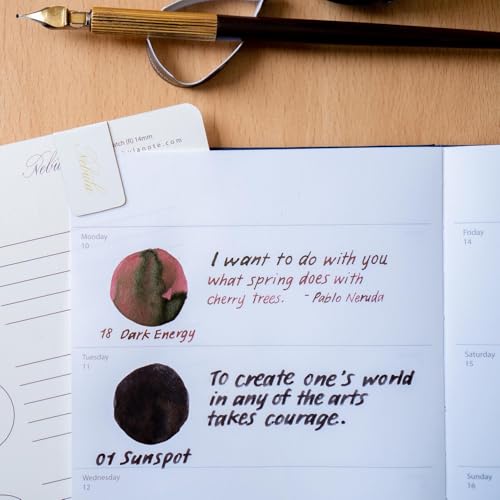 tch (B) 14mm
ulanote.com
Nebula
Monday
10
I want to do with you
what spring does with
cherry trees. - Pablo Neruda
18 Dark Energy
Tuesday
11
To create one's world
in any of the arts
takes courage.
01 Sunspot
Wednesday
12
Friday
14
Saturday
15
Sunday
16